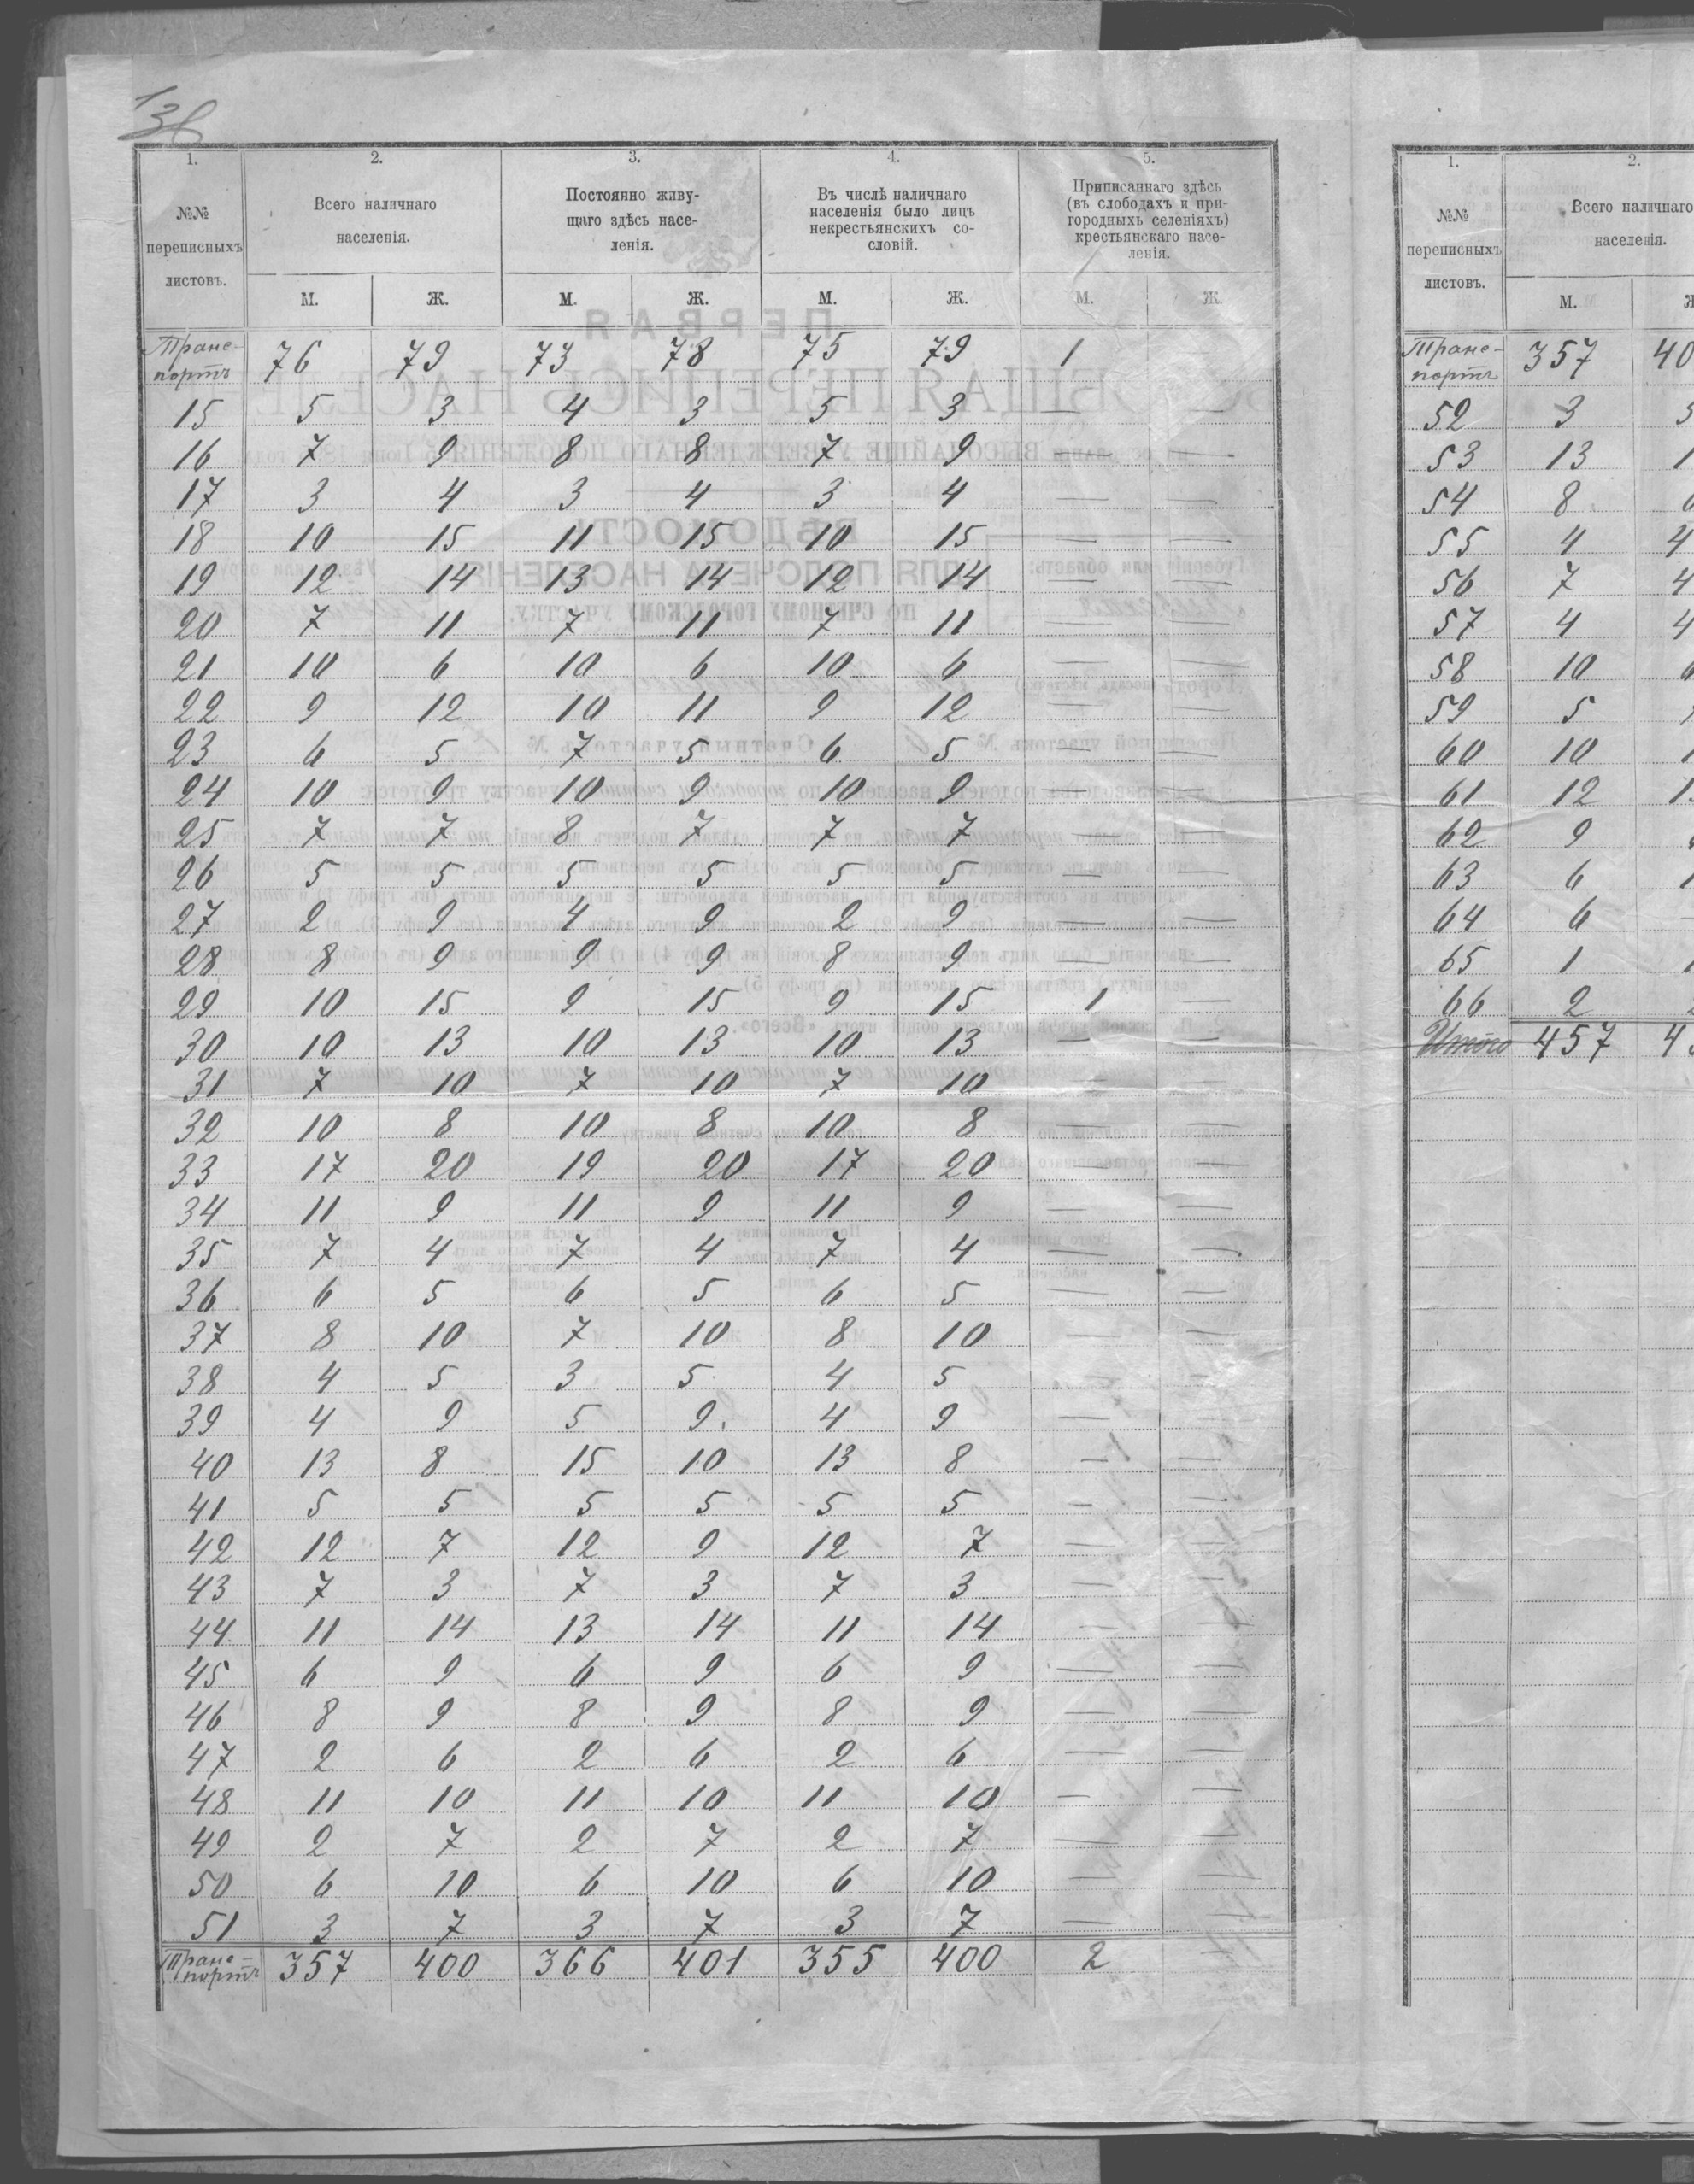 138
1. 2. 3. 4. 5.
№№ переписныхъ листовъ.
Всего наличнаго населенія.
Постоянно живущаго здѣсь населенія.
Въ числѣ наличнаго населенія было лицъ некрестьянскихъ сословій.
Приписаннаго здѣсь (въ слободахъ и пригородныхъ селеніяхъ) крестьянскаго населенія.
М. Ж. М. Ж. М. Ж. М. Ж.
Транспортъ 76 79 73 78 75 79 1
15 5 3 4 3 5 3 — —
16 7 9 8 8 7 9 — —
17 3 4 3 4 3 4 — —
18 10 15 11 15 10 15 — —
19 12 14 13 14 12 14 — —
20 7 11 7 11 7 11 — —
21 10 6 10 6 10 6 — —
22 9 12 10 11 9 12 — —
23 6 5 7 5 6 5 — —
24 10 9 10 9 10 9 — —
25 7 7 8 7 7 7 — —
26 5 5 5 5 5 5 — —
27 2 9 4 9 2 9 — —
28 8 9 9 9 8 9 — —
29 10 15 9 15 9 15 1 —
30 10 13 10 13 10 13 — —
31 7 10 7 10 7 10 — —
32 10 8 10 8 10 8 — —
33 17 20 19 20 17 20 — —
34 11 9 11 9 11 9 — —
35 7 4 7 4 7 4 — —
36 6 5 6 5 6 5 — —
37 8 10 7 10 8 10 — —
38 4 5 3 5 4 5 — —
39 4 9 5 9 4 9 — —
40 13 8 15 10 13 8 — —
41 5 5 5 5 5 5 — —
42 12 7 12 9 12 7 — —
43 7 3 7 3 7 3 — —
44 11 14 13 14 11 14 — —
45 6 9 6 9 6 9 — —
46 8 9 8 9 8 9 — —
47 2 6 2 6 2 6 — —
48 11 10 11 10 11 10 — —
49 2 7 2 7 2 7 — —
50 6 10 6 10 6 10 — —
51 3 7 3 7 3 7 — —
Транспортъ 357 400 366 401 355 400 2
1. 2.
№№ переписныхъ листовъ.
Всего наличнаго населенія.
М.
Транспортъ 357 40
52 3 3
53 13
54 8
55 4 4
56 7 4
57 4 4
58 10
59 5
60 10
61 12
62 9
63 6
64 6
65 1
66 2
Итого 457 4